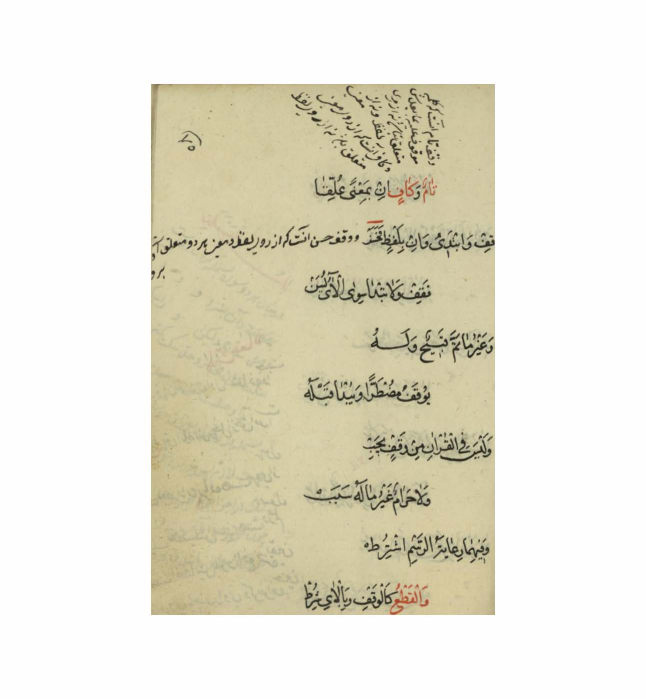 وقف تام آنست که کلمه
موقوف علیه
متعلق نباشد نه از روی
لفظ و نه از
معنی
و کافی آنست که از روی معنی
متعلق باشد نه از روی لفظ
تامٌ وكافٍ انِ بمعنًى عُلِّقا
قِف وابتدئ وان بلفظٍ فحسنٌ
و وقف حسن آنست که از روی لفظ و معنی هر دو متعلق
فقف ولا تبدا سوى الآي يُسَن
وغيرُ ما تمَّ قبيحٌ وله
يوقف مضطرًّا ويبدا قبله
وليس في القرآن من وقفٍ يجب
ولا حرامٌ غير ما له سبب
وفيهما رعاية الرسم اشتُرط
والقطع كالوقف وبالآي شُرط